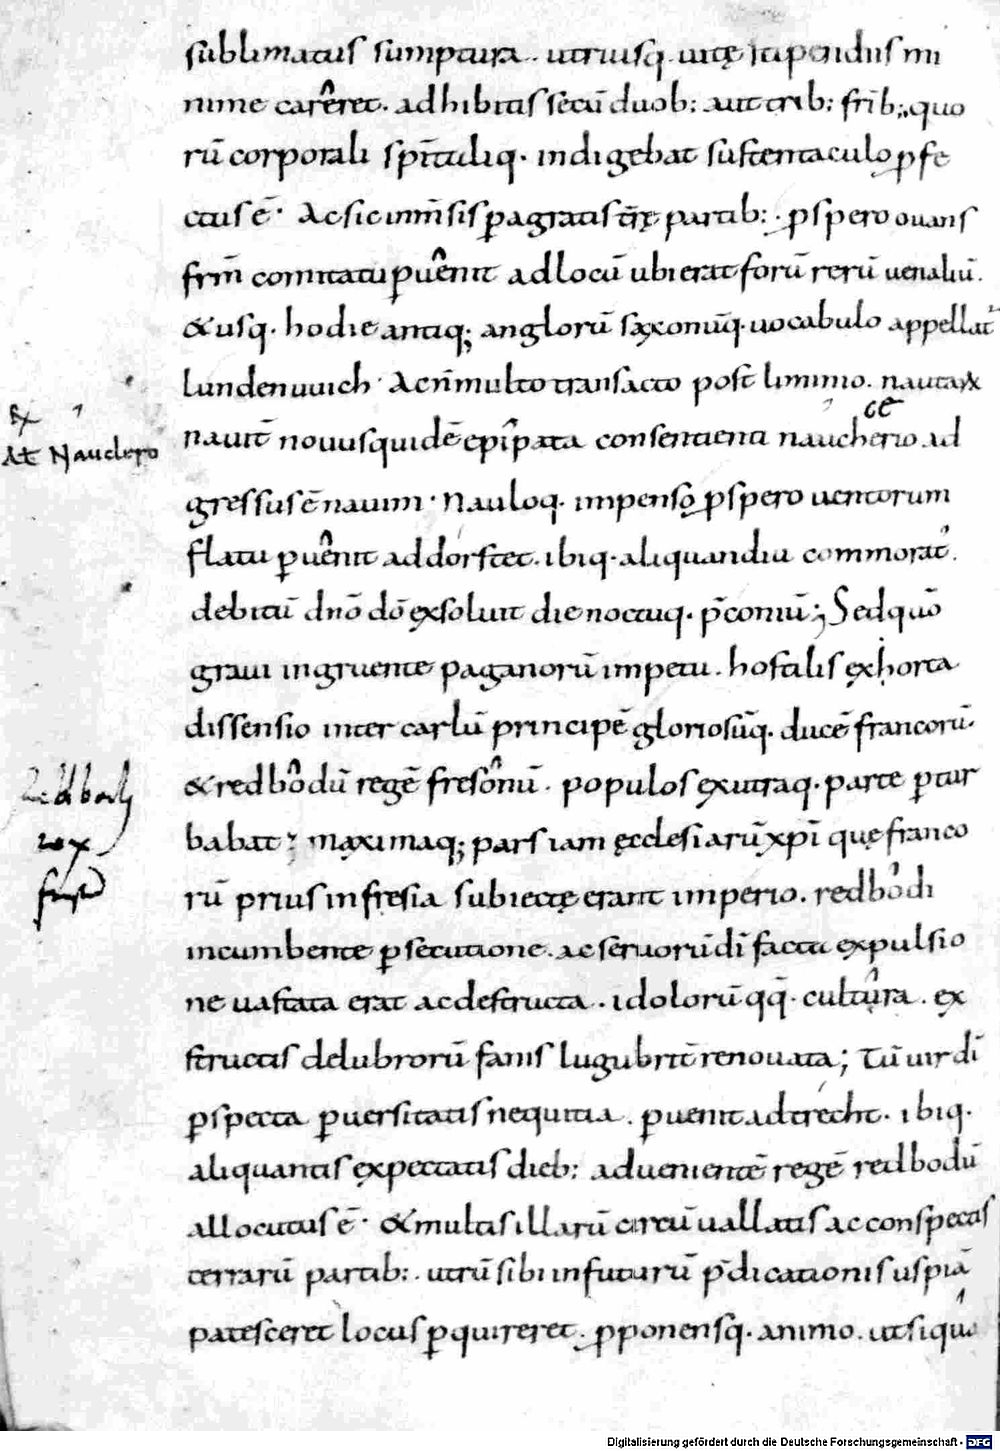 sublimatus sumptura. utriusq. uitę stipendiis mi
nime carêret. adhibitis secū duob: aut trib: frīb; quo
rū corporali sp̄italiq. indigebat sustentaculo ꝓfe
ctus ē. Ac sic inm̄sis ꝑagratis t̄rrę partib:. ꝓspero ouans
frm̄ comitatu ꝑuênit ad locū ubi erat forū rerū uenaliū.
& usq. hodie antiq; anglorū saxonūq. uocabulo appellat᷑
lundenuuich. Ac n̄ multo transacto post liminio. nauta
At Nauclero
nauit̄ nouus quidē epîpata consentienti nauclerio ad
ce
gressus ē nauim. Nauloq. impenso ꝓspero uentorum
flatu ꝑuênit ad dorstet. ibiq. aliquandiu commorat᷑.
debitū dnō dō exsoluit die noctuq. p̄coniū; Sed quō
graui ingruente paganorū impetu. hostilis exhorta
dissensio inter carlū principē gloriosūq. ducē francorū.
& redbôdū regē fresônū. populos ex utraq. parte ꝑtur
babat; maximaq; pars iam ęcclesiarū xp̄i quę franco
Redbodꝰ
rex
rū prius in fresia subiectę erant imperio. redbôdi
incumbente ꝑsecutione. ac seruorū dī facta expulsio
ne uastata erat ac destructa. idolorū qq̄. cultûra. ex
structis delubrorū fanis lugubrit̄ renouata; Tū uir dī
ꝑspecta ꝑuersitatis nequitia. ꝑuenit ad trecht. ibiq.
aliquantis expectatis dieb: aduenientē regē redbodū
allocutus ē. & multis illarū circū uallatis ac conspectis
terrarū partib:. utrū sibi in futurū p̄dicationis uspiā
patesceret locus ꝑquireret. ꝓponensq. animo. ut si quā
Digitalisierung gefördert durch die Deutsche Forschungsgemeinschaft - DFG